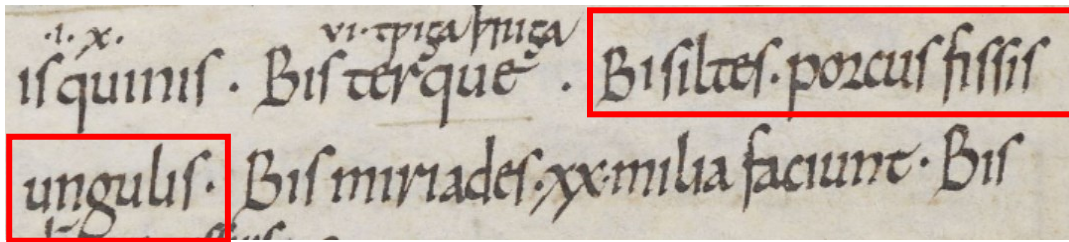 .i. x. vi. triga
isquinis . Bis terque . Bisiltes. porcus fissis
ungulis. Bis miriades. xx. milia faciunt. Bis